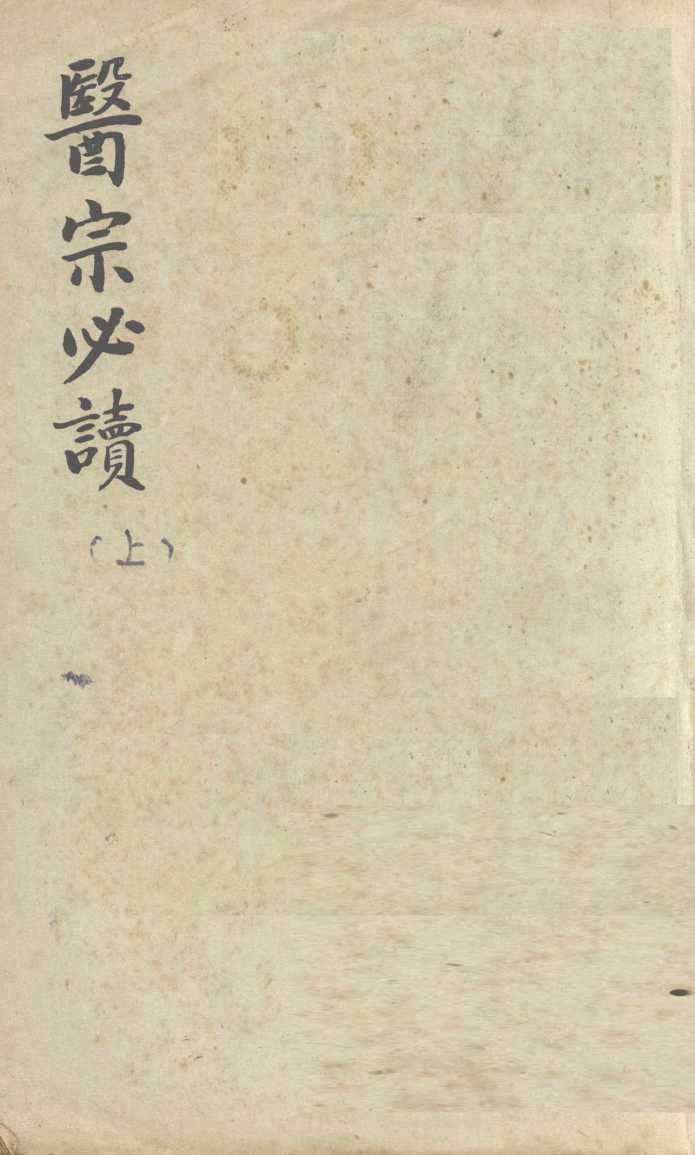 醫宗必讀
（上）